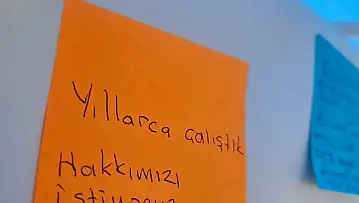 Yıllarca çalıştık
Hakkımızı
istiyoruz